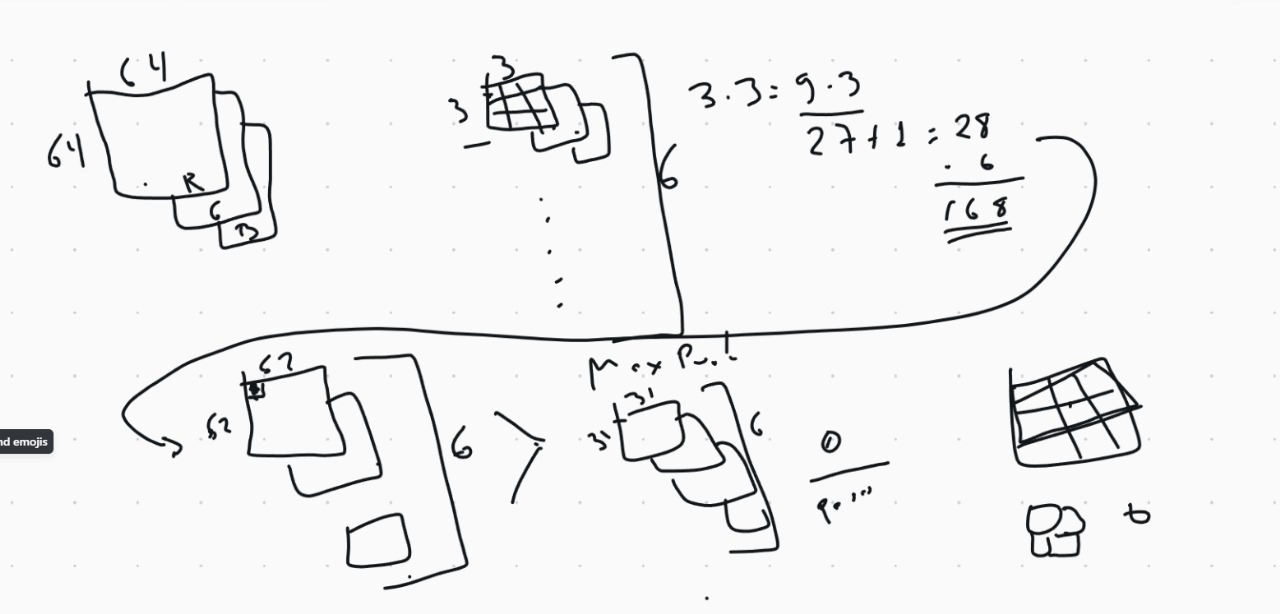 64
64
R
G
B
3
3
6
3.3 = 9.3
27+1 = 28
. 6
168
62
62
6
Max Pool
31
31
6
0
nd emojis